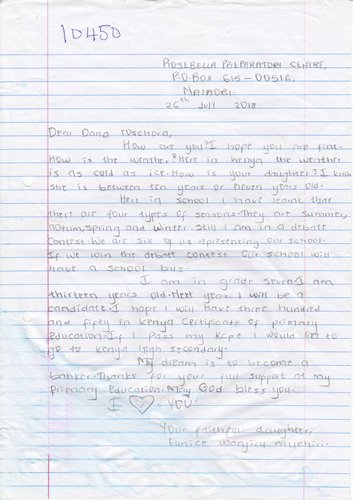 10450
ROSEBELLA PREPARATORY CENTRE,
P.O.BOX 615-00516,
NAIROBI.
26th JULY 2018
Dear Dana
How are you? I hope you are fine.
How is the weather? Here in Kenya the weather
is as cold as ice. How is your daughter? I know
she is between ten years or eleven years old.
Here in school I have learnt that
there are four types of seasons. They are summer,
autum, spring and winter. Still I am in a debate
contest. We are six of us representing our school.
If we win the debate contest our school will
have a school bus.
I am in grade seven. I am
thirteen years old. Next year I will be a
candidate. I hope I will have three hundred
and fifty in Kenya Certificate of primary
Education. If I pass my Kcpe I would like to
go to Kenya high secondary.
My dream is to become a
banker. Thanks for your full support at my
primary education. May God bless you.
I ♡ YOU.
Your faithful daughter,
Eunice Wanjiru